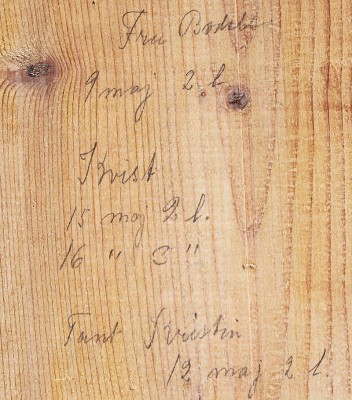 Fru
9 maj 2 l.
Kvist
15 maj 2 l.
16 " 3 "
Tant Kristin
12 maj 2 l.